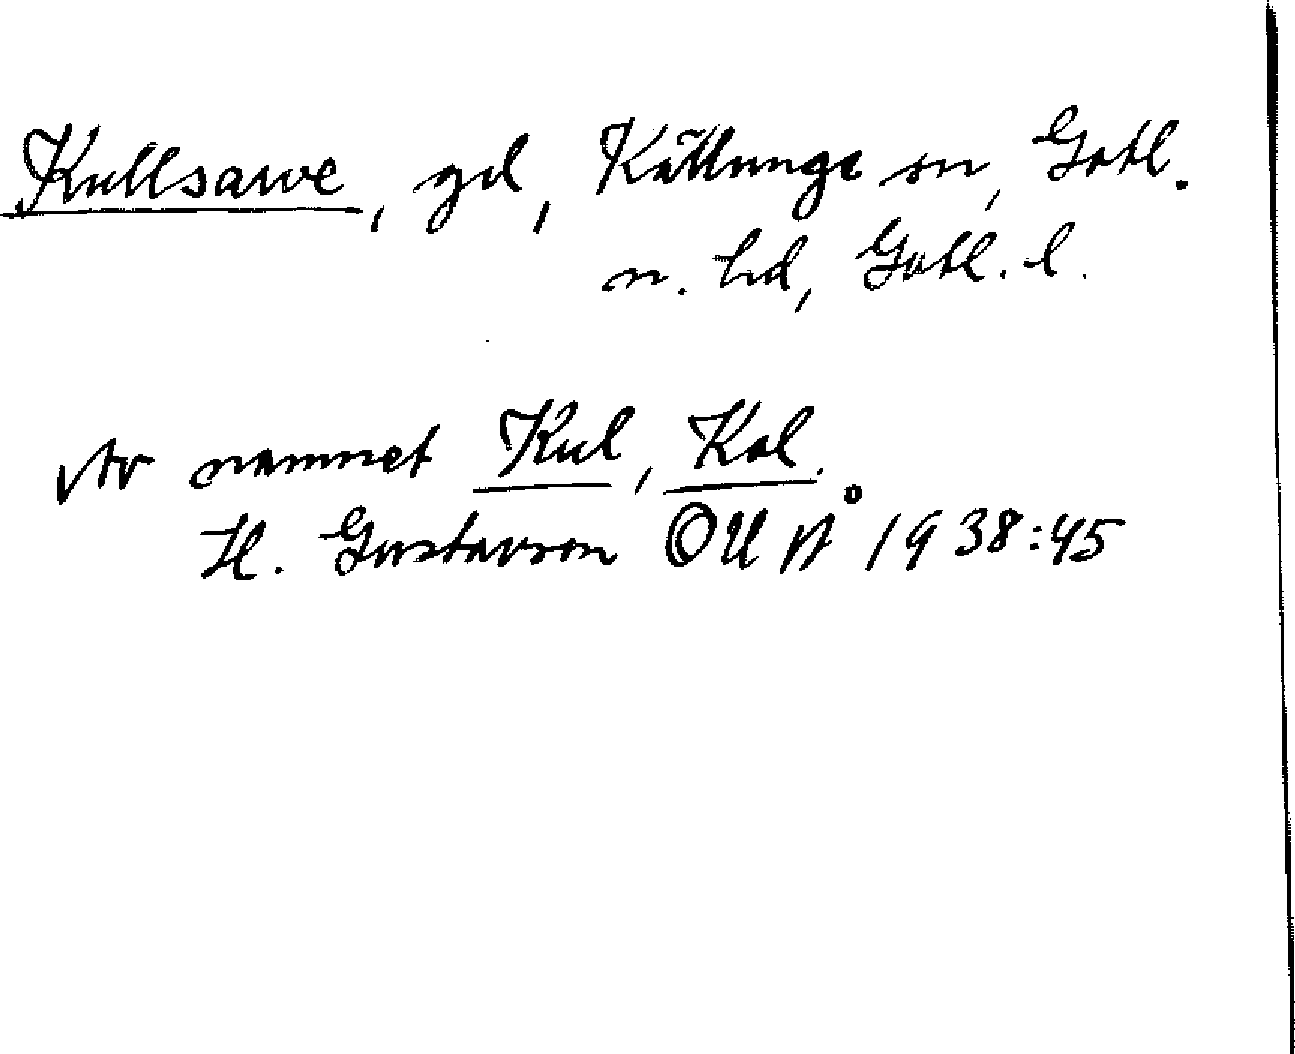 Kullsarve, gd, Källunge sn, Gotl.
n. hd, Gotl. l.
Av namnet Kul, Kol.
H. Gustavson OUÅ 1938:45